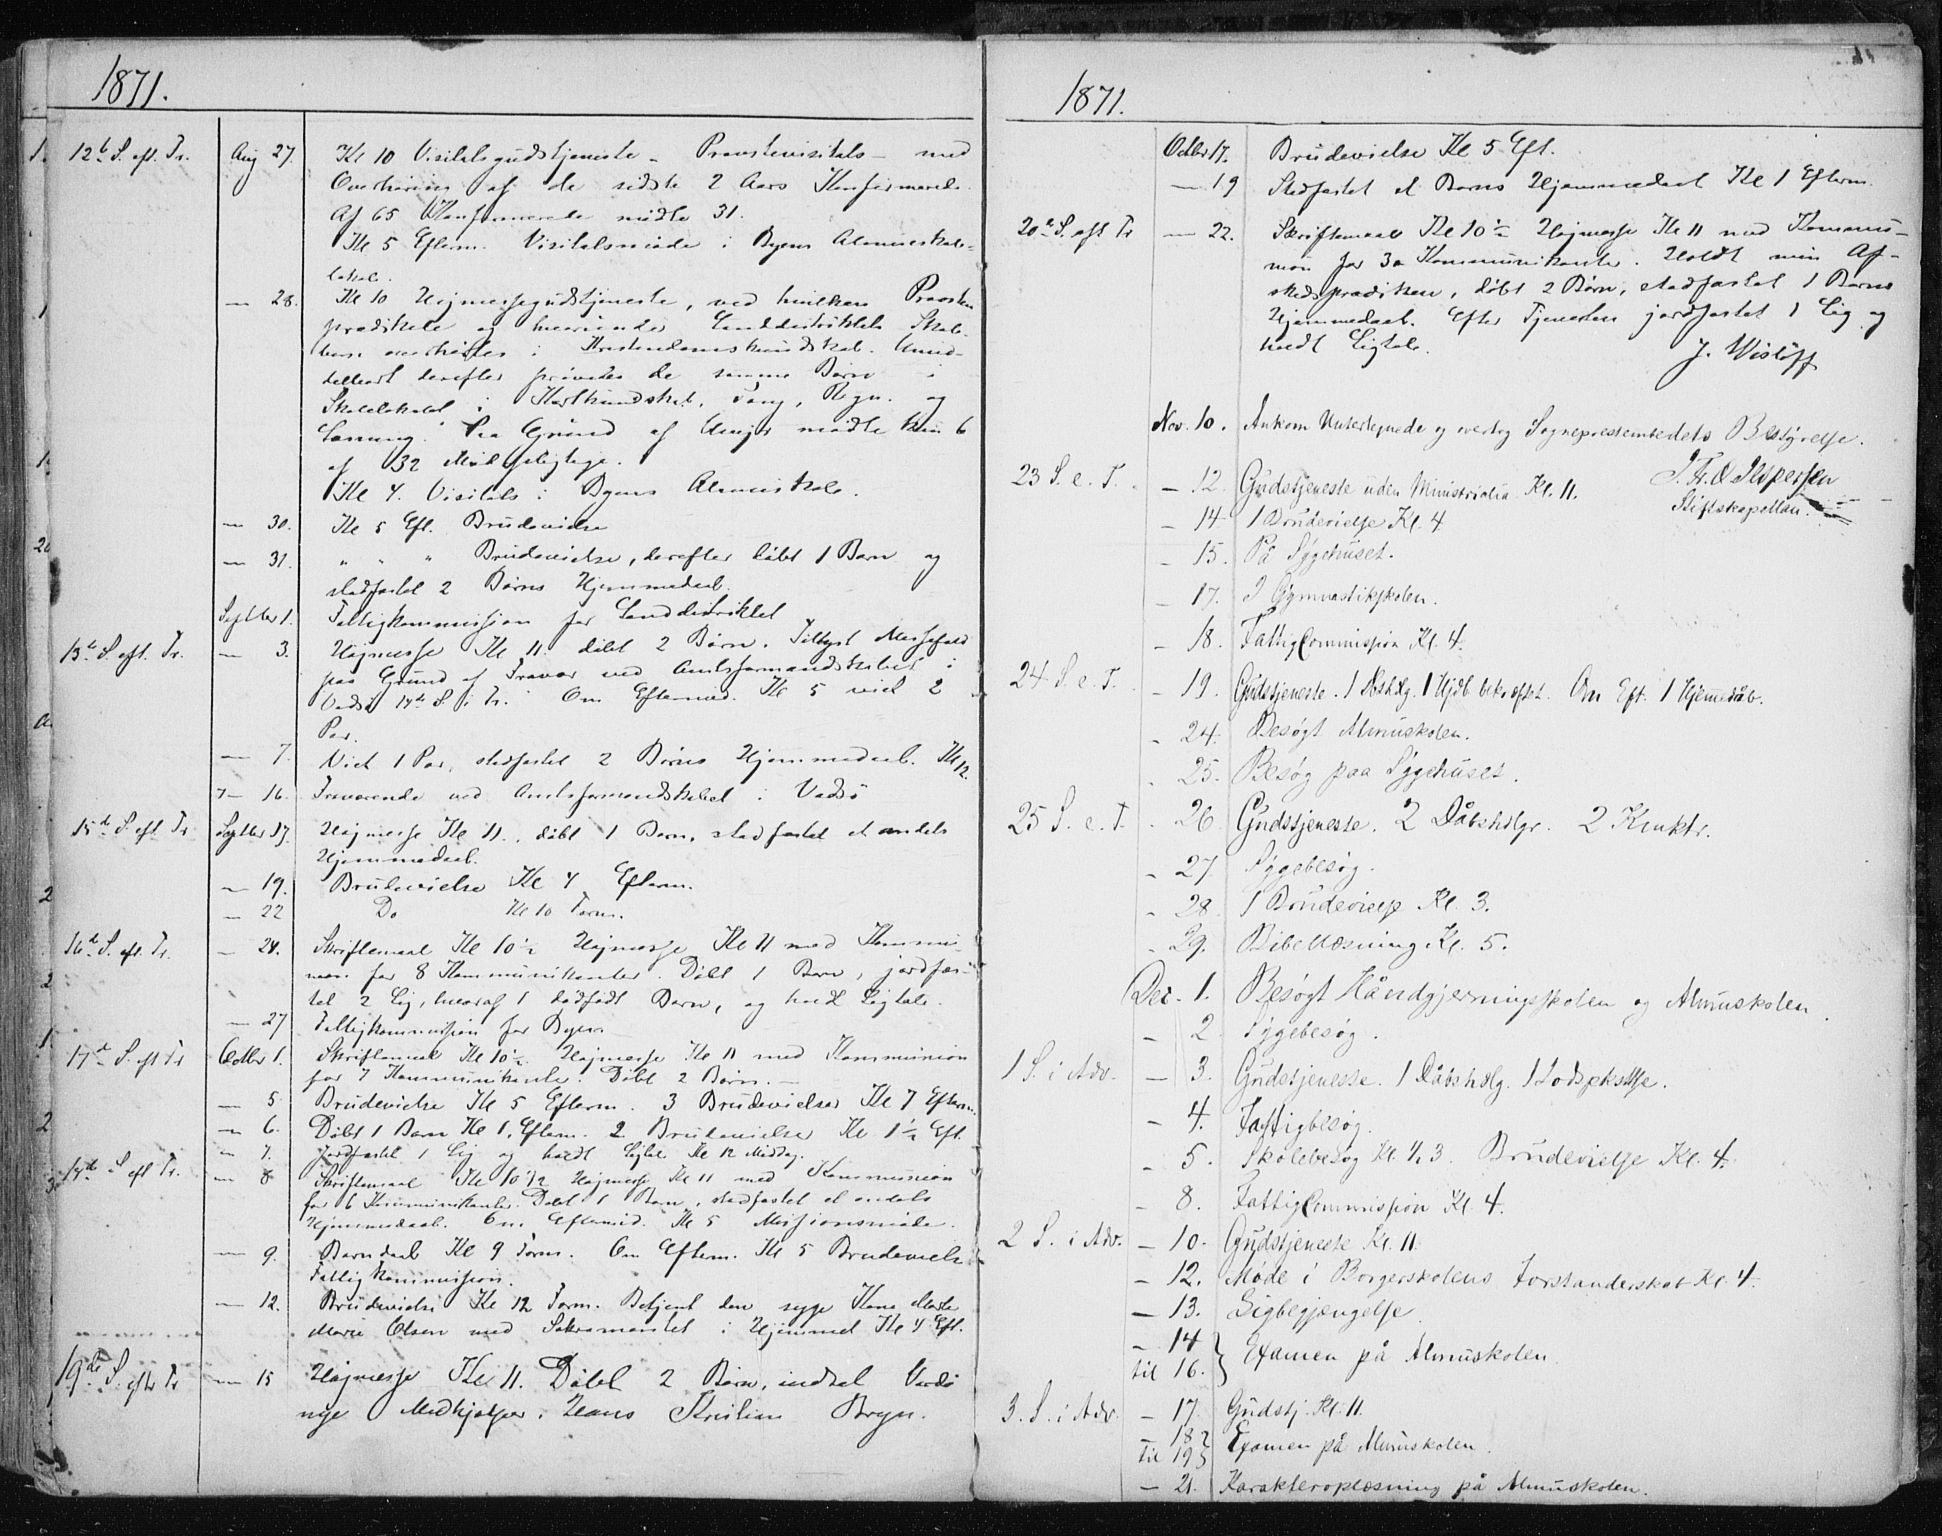 1871.
12te S. eft. Tr. Aug 27. Kl 10 Visitatsgudstjeneste – Provstevisitats – med
Overhøring af de sidste 2 Aars Konfirmerede.
Af 65 Konfirmerede mødte 31.
Kl 5 Efterm. Visitatsmøde i Byens Almueskole-
lokale.
— 28. Kl 10 Højmessegudstjeneste, ved hvilken Provsten
prædikede og hvorunder Landdistriktets Skole-
børn overhørtes i Kristendomskundskab. Umid-
delbart derefter prøvedes de samme Børn i
Skolelokalet i Kartkundskab, Sang, Regn. og
Læsning. Paa Grund af Uvejr mødte kun 6
af 32 Mødepligtige.
Kl 4. Visitats i Byens Almueskole.
— 30. Kl 5 Eft. Brudevielse
— 31. " " " Brudevielse, derefter døbt 1 Barn og
stadfæstet 2 Børns Hjemmedaab.
Septbr 1. Fattigkommission for Landdistriktet
13de S. eft. Tr. — 3. Højmesse Kl 11. døbt 2 Børn. Tillyst Messefald
paa Grund af Fravær ved Amtsformandskabet i
Vadsø 14de S. e. Tr. Om Eftermid. Kl 5 viet 2
Par.
— 7. Viet 1 Par, stadfæstet 2 Børns Hjemmedaab. Kl 12.
— 16. Fraværende ved Amtsformandskabet i Vadsø
15de S. eft. Tr. Septbr 17. Højmesse Kl 11., døbt 1 Barn, stadfæstet et andets
Hjemmedaab.
— 19. Brudevielse Kl 4 Efterm.
— 22 Do Kl 10 Form.
16de S. eft. Tr. — 24. Skriftemaal Kl 10½ Højmesse Kl 11 med Kommu-
nion for 8 Kommunikanter. Døbt 1 Barn, jordfæs-
tet 2 Lig, hvoraf 1 dødfødt Barn, og holdt Ligtale.
— 27 Fattigkommission for Byen
17de S. eft Tr Octbr 1. Skriftemaal Kl 10½ Højmesse Kl 11 med Kommunion
for 7 Kommunikanter. Døbt 2 Børn. —
— 5. Brudevielse Kl 5 Efterm. 3 Brudevielser Kl 7 Efterm.
— 6. Døbt 1 Barn Kl 1, Efterm. 2 Brudevielser Kl 1½ Eft.
— 7. Jordfæstet 1 Lig og holdt Ligtale Kl 12 Middag.
18de S eft Tr. — 8 Skriftemaal Kl 10½ Højmesse Kl 11 med Kommunion
for 6 Kommunikanter. Døbt 1 Barn, stadfæstet et andets
Hjemmedaab. Om Eftermid. Kl 5 Missionsmøde.
— 9. Barnedaab Kl 9 Form. Om Efterm. Kl 5 Brudevielse
Fattigkommission.
— 12. Brudevielse Kl 12 Form. Betjent den syge Kone
Marie Olsen med Sakramentet i Hjemmet Kl 4 Eft.
19de S. efter Tr — 15 Højmesse Kl 11. Døbt 2 Børn, indsat Vardø
nye Medhjælper, Hans Kristian Bryn.
1871.
Octbr 17. Brudevielse Kl 5 Eft.
— 19 Stadfæstet et Barns Hjemmedaab Kl 1 Efterm.
20de S. eft Tr — 22. Skriftemaal Kl 10½ Højmesse Kl 11 med Kommu-
nion for 30 Kommunikanter. Holdt min Af-
skedsprædiken, døbt 2 Børn, stadfæstet 1 Barns
Hjemmedaab. Efter Tjenesten jordfæstet 1 Lig og
holdt Ligtale.
J. Wisløff
Nov. 10. Ankom Undertegnede og overtog Sognepræstembedets Bestyrelse.
J. Fr. O. Ilspersen
Stiftskapellan.
23 S. e. T. — 12. Gudstjeneste uden Ministrialia Kl. 11.
— 14. 1 Brudevielse Kl. 4
- 15. På Sygehuset.
- 17. I Gymnastikskolen.
- 18. FattigCommission Kl. 4.
24 S. e. T. - 19. Gudstjeneste. 1 Dbshdlg. 1 Hjdb bekræftet. Om Eft. 1 Hjemmedåb.
- 24. Besøgt Almuskolen.
- 25. Besøg paa Sygehuset.
25 S. e. T. - 26. Gudstjeneste. 2 Dåbshdlgr. 2 Kmktr.
- 27. Sygebesøg.
- 28. 1 Brudevielse Kl. 3.
- 29. Bibellæsning Kl. 5.
Dec. 1. Besøgt Håndgjerningsskolen og Almuskolen.
- 2. Sygebesøg.
1 S. i Adv. — 3. Gudstjeneste. 1 Dåbshdlg. 1 Jodspkstlse.
— 4. Fattigbesøg.
- 5. Skolebesøg Kl. ½ 3. Brudevielse Kl. 4.
- 8. FattigCommission Kl. 4.
2 S. i Adv. — 10. Gudstjeneste Kl. 11.
— 12. Møde i Borgerskolens Forstanderskab Kl. 4.
— 13. Ligbegjængelse.
— 14
til 16. } Examen på Almuskolen.
3. S. i Adv. — 17. Gudstj. Kl. 11.
18
til 19 } Examen på Almuskolen.
— 21. Karakteroplæsning på Almuskolen.